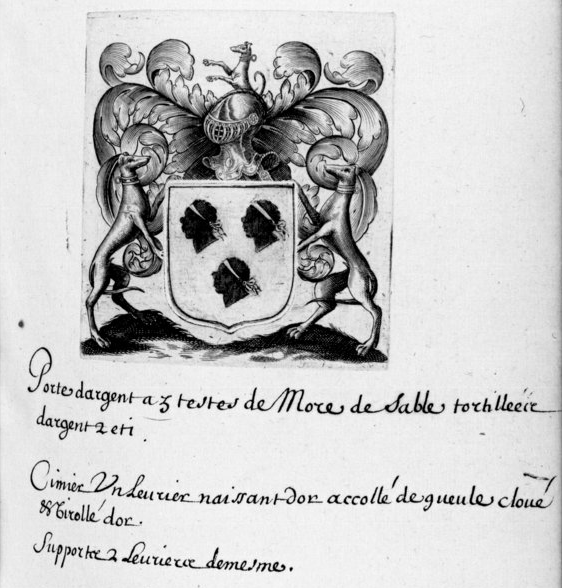 Porte dargent a 3 testes de More de Sable tortilleèr
dargent 2 et i .
Cimier Vn Leurier naissant dor accollé de gueule cloué
& Virollé dor.
Supporte 2 Leurier demesme.